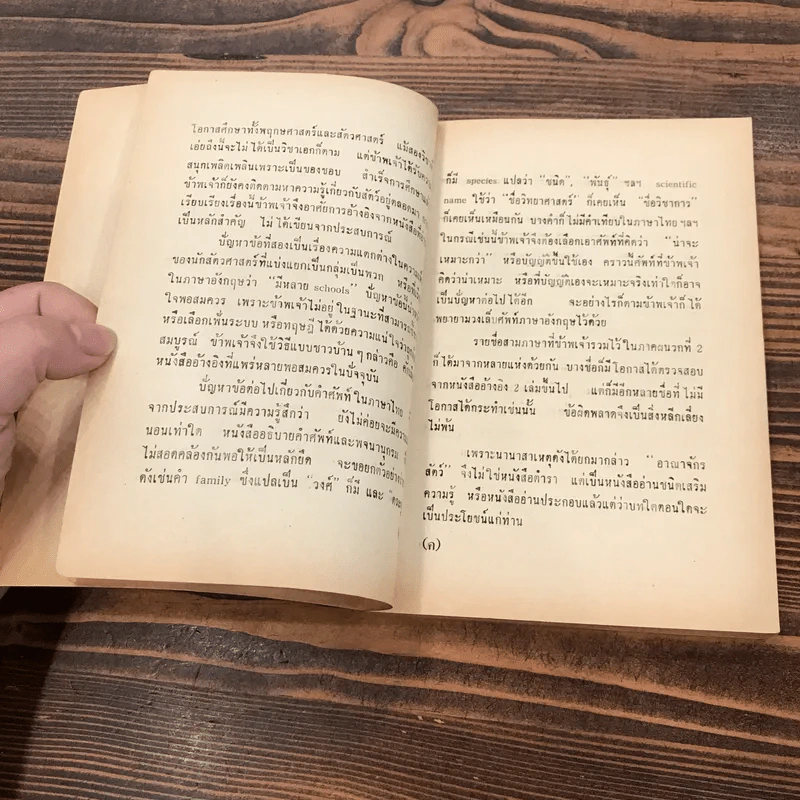 โอกาสศึกษาทั้งพฤกษศาสตร์และสัตวศาสตร์ แม้สองวิชา
เอ่ยถึงนี้จะไม่ได้เป็นวิชาเอกก็ตาม แต่ข้าพเจ้าได้รับความ
สนุกเพลิดเพลินเพราะเป็นของชอบ สำเร็จการศึกษา
ข้าพเจ้าก็ยังคงติดตามหาความรู้เกี่ยวกับสัตว์อยู่ตลอดมา
เรียบเรียงเรื่องนี้ข้าพเจ้าจึงอาศัยการอ้างอิงจากหนังสือ
เป็นหลักสำคัญ ไม่ได้เขียนจากประสบการณ์
ปัญหาข้อที่สองเป็นเรื่องความแตกต่างในความ
ของนักสัตวศาสตร์ที่แบ่งแยกเป็นกลุ่มเป็นพวก หรือที่
ในภาษาอังกฤษว่า "มีหลาย schools" ปัญหาข้อนี้
ใจพอสมควร เพราะข้าพเจ้าไม่อยู่ในฐานะที่สามารถ
หรือเลือกเฟ้นระบบ หรือทฤษฎี ได้ด้วยความแน่ใจว่า
สมบูรณ์ ข้าพเจ้าจึงใช้วิธีแบบชาวบ้าน ๆ กล่าวคือ
หนังสืออ้างอิงที่แพร่หลายพอสมควรในปัจจุบัน
ปัญหาข้อต่อไปเกี่ยวกับคำศัพท์ในภาษาไทย
จากประสบการณ์มีความรู้สึกว่า ยังไม่ค่อยจะมีความ
นอนเท่าใด หนังสืออธิบายคำศัพท์และพจนานุกรม
ไม่สอดคล้องกันพอให้เป็นหลักยึด จะขอยกตัวอย่าง
ดังเช่นคำ family ซึ่งแปลเป็น "วงศ์" ก็มี และ
ก็มี species แปลว่า "ชนิด", "พันธุ์" ฯลฯ scientific
name ใช้ว่า "ชื่อวิทยาศาสตร์" ก็เคยเห็น "ชื่อวิชาการ"
ก็เคยเห็นเหมือนกัน บางคำก็ไม่มีคำเทียบในภาษาไทย ฯลฯ
ในกรณีเช่นนี้ข้าพเจ้าจึงต้องเลือกเอาศัพท์ที่คิดว่า "น่าจะ
เหมาะกว่า" หรือบัญญัติขึ้นใช้เอง คราวนี้ศัพท์ที่ข้าพเจ้า
คิดว่าน่าเหมาะ หรือที่บัญญัติเองจะเหมาะจริงเท่าใดก็อาจ
เป็นปัญหาต่อไปได้อีก จะอย่างไรก็ตามข้าพเจ้าก็ได้
พยายามวงเล็บศัพท์ภาษาอังกฤษไว้ด้วย
รายชื่อสามภาษาที่ข้าพเจ้ารวมไว้ในภาคผนวกที่ 2
ก็ได้มาจากหลายแห่งด้วยกัน บางชื่อก็มีโอกาสได้ตรวจสอบ
จากหนังสืออ้างอิง 2 เล่มขึ้นไป แต่ก็มีอีกหลายชื่อที่ไม่มี
โอกาสได้กระทำเช่นนั้น ข้อผิดพลาดจึงเป็นสิ่งหลีกเลี่ยง
ไม่พ้น
เพราะนานาสาเหตุดังได้ยกมากล่าว "อาณาจักร
สัตว์" จึงไม่ใช่หนังสือตำรา แต่เป็นหนังสืออ่านชนิดเสริม
ความรู้ หรือหนังสืออ่านประกอบแล้วแต่ว่าบทใดตอนใดจะ
เป็นประโยชน์แก่ท่าน
(ค)